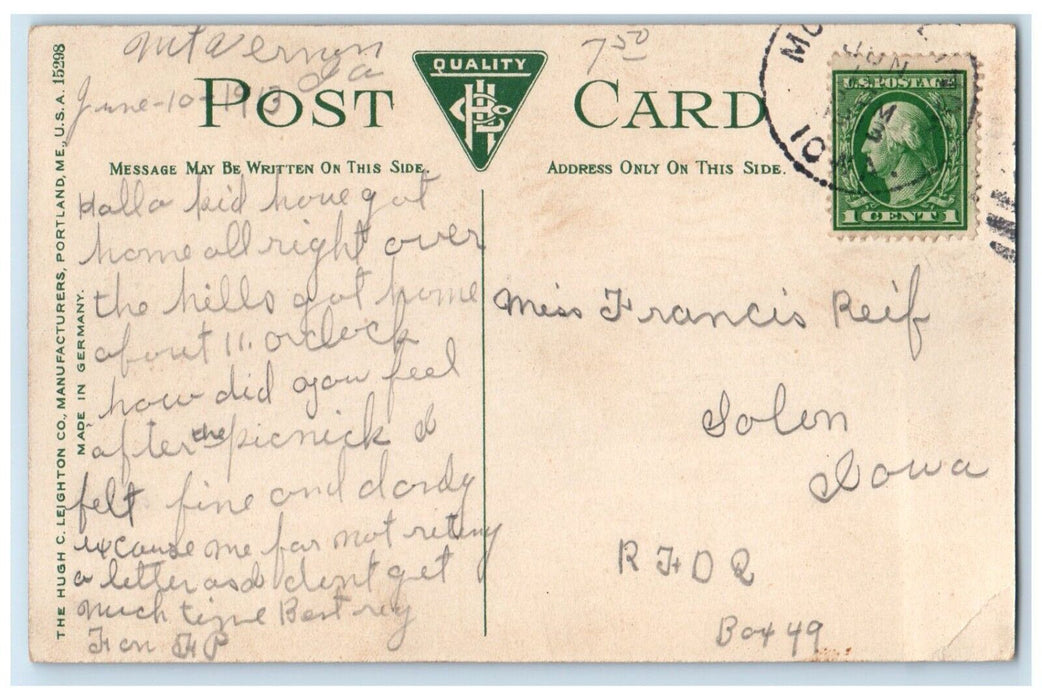 Mt Vernon
Ia
June-10-1913
7 50
POST CARD
QUALITY
MESSAGE MAY BE WRITTEN ON THIS SIDE.
ADDRESS ONLY ON THIS SIDE.
THE HUGH C. LEIGHTON CO., MANUFACTURERS, PORTLAND, ME., U.S.A. 15298
MADE IN GERMANY.
Hallo kid hove got
home all right over
the hills got home
about 11. oclock
how did you feel
after the picnick I
felt fine and dandy
excause me for not riteing
a letter as I dont get
much time Best reg
F on
JUN
IOWA.
U.S. POSTAGE
1 CENT 1
Miss Francis Reif
Solon
Iowa
R F D 2
Box 49